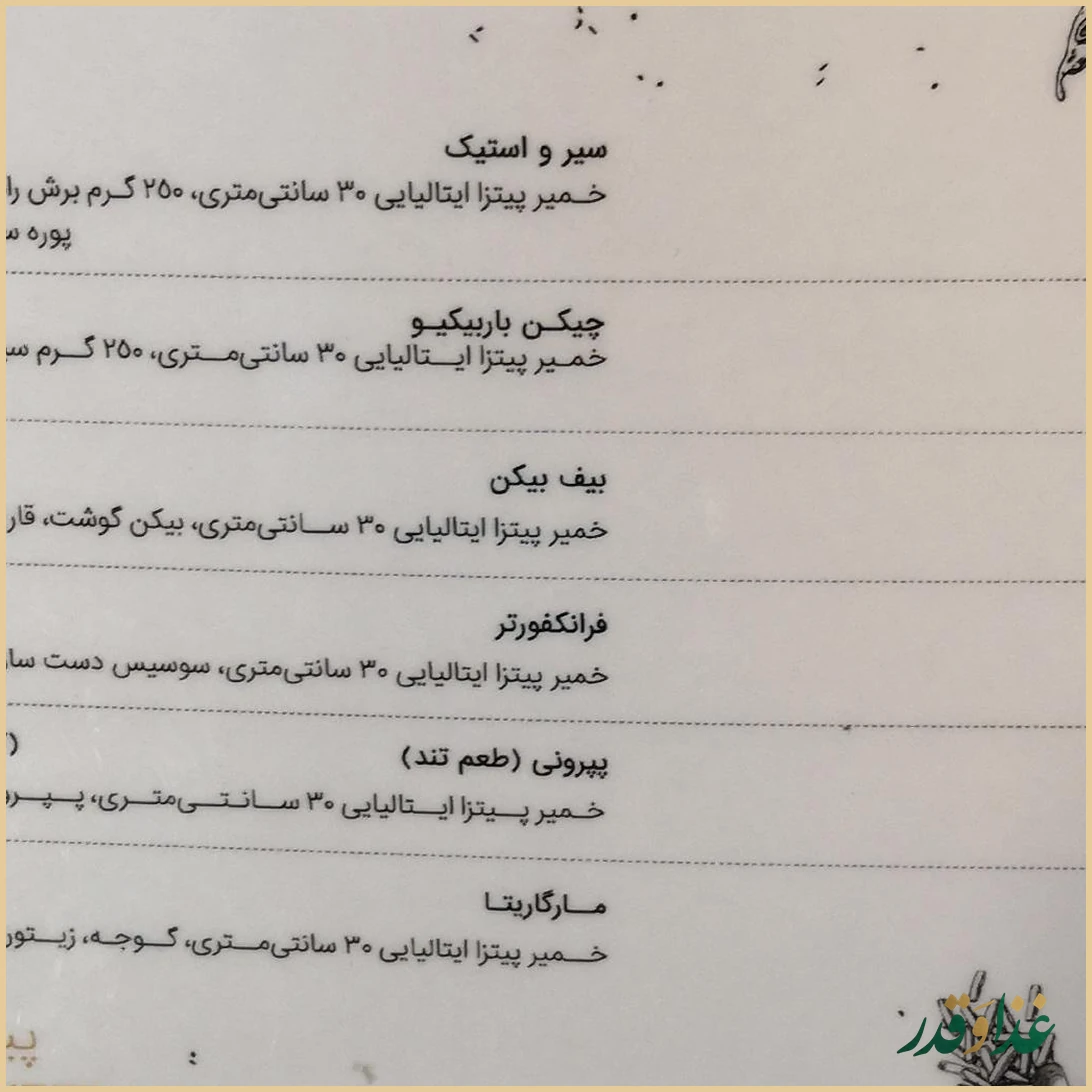 سیر و استیک
خمیر پیتزا ایتالیایی ۳۰ سانتی‌متری، ۲۵۰ گرم برش
پوره
چیکن باربیکیو
خمیر پیتزا ایتالیایی ۳۰ سانتی‌متری، ۲۵۰ گرم
بیف بیکن
خمیر پیتزا ایتالیایی ۳۰ سانتی‌متری، بیکن گوشت،
فرانکفورتر
خمیر پیتزا ایتالیایی ۳۰ سانتی‌متری، سوسیس دست
پپرونی (طعم تند)
خمیر پیتزا ایتالیایی ۳۰ سانتی‌متری،
مارگاریتا
خمیر پیتزا ایتالیایی ۳۰ سانتی‌متری، گوجه،
غذا و قدر